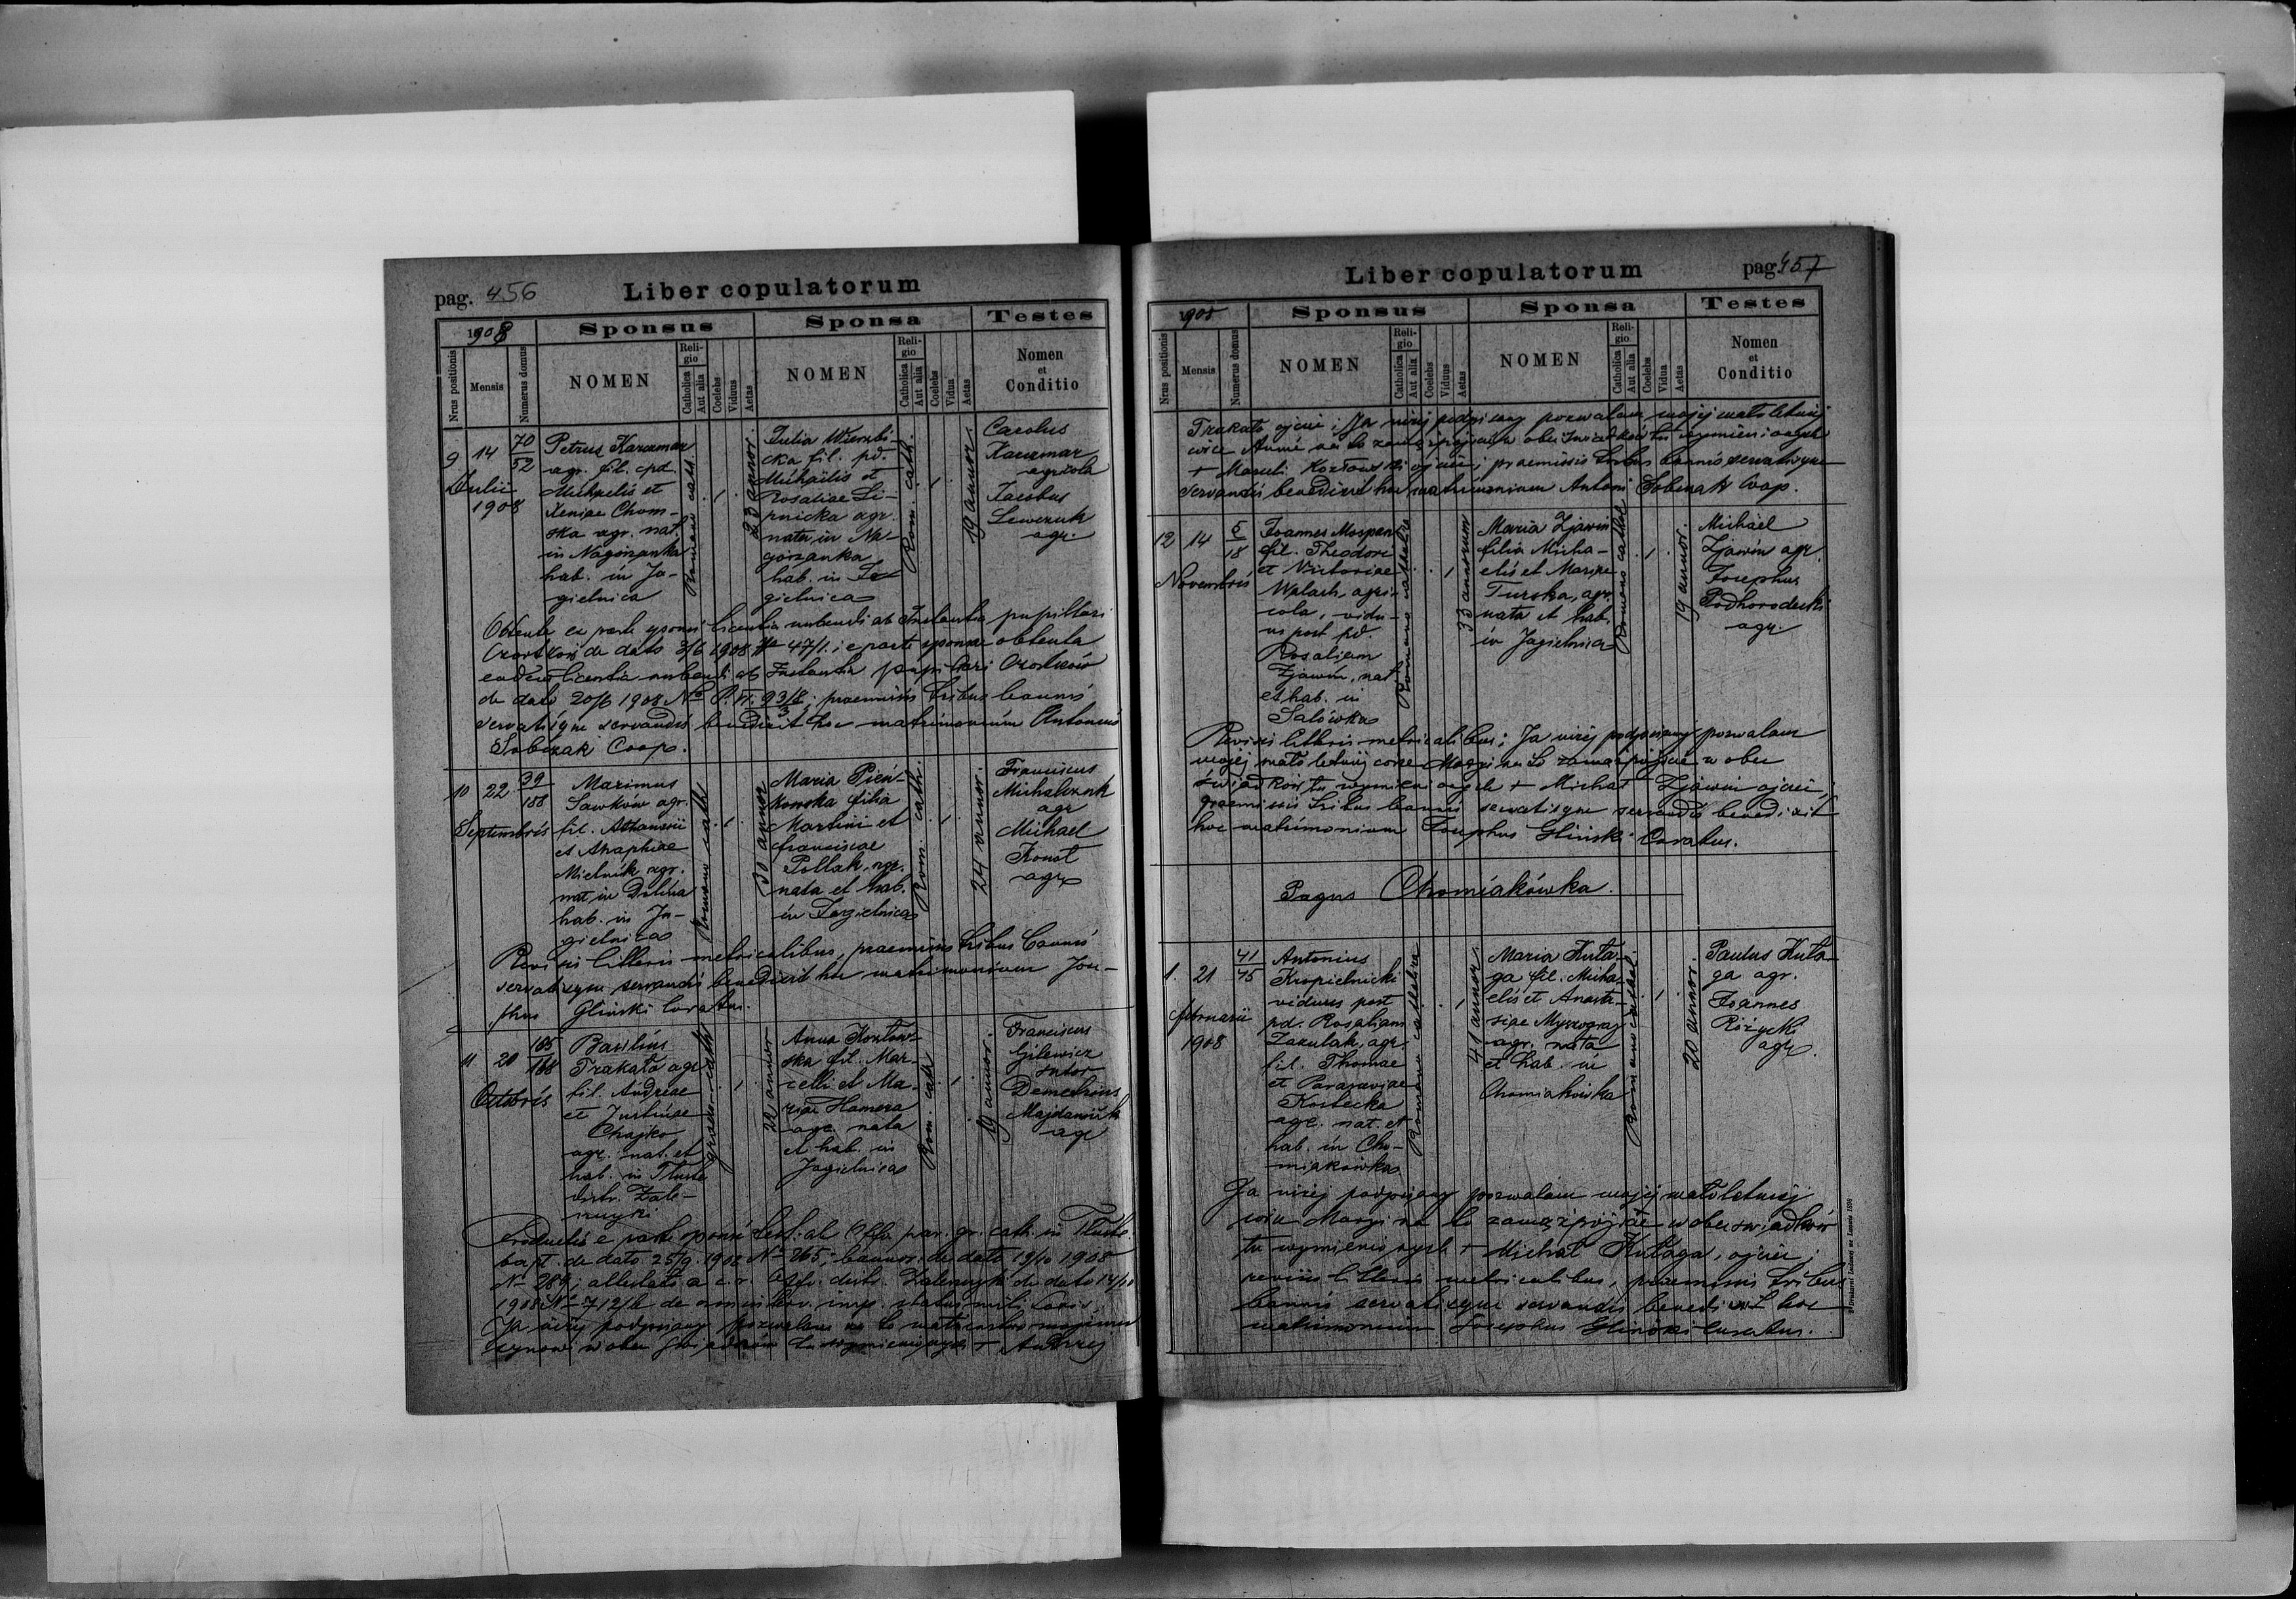 pag. 456
Liber copulatorum
1908
Sponsus
Sponsa
Testes
Nrus positionis
Mensis
Numerus domus
NOMEN
Religio
Catholica
Aut alia
Coelebs
Viduus
Aetas
NOMEN
Religio
Catholica
Aut alia
Coelebs
Vidua
Aetas
Nomen
et
Conditio
9 14 70/52
Julii
1908
Petrus Karczmar
agr. fil. cpd.
Michaelis et
Xeniae Chom-
ska agr. nat.
in Nagórzanka
hab. in Ja-
gielnica
Romano cath.
1
23 annor.
Julia Wierzbi-
cka fil. pd.
Michaëlis et
Rosaliae Li-
pnicka agr.
nata in Na-
górzanka
hab. in Ja-
gielnica
Rom. cath.
1
19 annor.
Carolus
Karczmar
agricola
Jacobus
Lewczuk
agr.
Obtenta ex parte sponsi licentia nubendi ab Instantia pupillari
Czortków de dato 3/6 1908 No 47/1. ; e parte sponsae obtenta
eadem licentia nubendi ab Instantia pupillari Czortków
de dato 20/6 1908 No P. VI. 93/8/3; praemissis tribus bannis
servatisque servandis benedixit hoc matrimonium Antonius
Sobczak Coop.
10 22 39/188
Septembris
Maximus
Sawków agr.
fil. Athanasii
et Ahaphiae
Mielnik agr.
nat in Dolina
hab. in Ja-
gielnica
Romano cath.
1
30 annor
Maria Pień-
kowska filia
Martini et
Franciscae
Pollak, agr.
nata et hab.
in Jagielnica
Rom. cath.
1
24 annor.
Franciscus
Michalczuk
agr
Michael
Konot
agr
Revisis litteris metricalibus, praemissis tribus bannis
servatisque servandis benedixit hoc matrimonium Jose-
phus Gliński Curatus.
11 20 165/168
Octobris
Basilius
Trakało agr
fil. Andreae
et Justinae
Chajko
agr. nat. et
hab. in Tłuste
distr. Zale-
szczyki
graeco cath
1
22 annor
Anna Kozłow-
ska fil. Mar-
celli et Ma-
riae Hamera
agr. nata
et hab. in
Jagielnica
Rom. cath
1
19 annor.
Franciscus
Gilewicz
sutor
Demetrius
Majdaniuk
agr
Productis e parte sponsi test. ab Offo par. gr. cath. in Tłuste
bapt. de dato 25/9 1902 No 265; bannor. de dato 19/10 1908
No 289; attestato a c. r. Offo. distr. Zaleszczyki de dato 14/10
1908 No 712/b de
Ja niżej podpisany pozwalam na to małżeństwo mojemu
synowi w obec świadków tu wymienionych + Andrzej
pag. 457
Liber copulatorum
1908
Sponsus
Sponsa
Testes
Nrus positionis
Mensis
Numerus domus
NOMEN
Religio
Catholica
Aut alia
Coelebs
Viduus
Aetas
NOMEN
Religio
Catholica
Aut alia
Coelebs
Vidua
Aetas
Nomen
et
Conditio
Trakało ojciec; Ja niżej podpisany pozwalam mojej małoletniej
córce Annie na to zamążpójście w obec świadków tu wymienionych
+ Marceli Kozłowski ojciec; praemissis tribus bannis servatisque
servandis benedixit hoc matrimonium Antoni Sobczak Coop.
12 14 5/18
Novembris
Joannes Mospan
fil. Theodori
et Victoriae
Walach, agri-
cola, vidu-
us post pd.
Rosaliam
Zjawin, nat
et hab. in
Salówka
Romano catholica
1
33 annorum
Maria Zjawin
filia Micha-
elis et Mariae
Turska, agr.
nata et hab.
in Jagielnica
Romano cathol
1
19 annor.
Michaël
Zjawin agr
Josephus
Podhorodecki
agr.
Revisis litteris metricalibus; Ja niżej podpisany pozwalam
mojej małoletniej córce Maryi na to zamążpójście w obec
świadków tu wymienionych + Michał Zjawin ojciec,
praemissis tribus bannis servatisque servandis benedixit
hoc matrimonium Josephus Gliński Curatus.
Pagus Chomiakówka.
1. 21 41/45
februarii
1908
Antonius
Kropielnicki
viduus post
pd. Rosaliam
Zazulak, agr.
fil. Thomae
et Parasceviae
Kostecka
agr. nat. et
hab. in Cho-
miakówka
Romano catholica
1
41 annor.
Maria Kuta-
ga fil. Micha-
elis et Anasta-
siae Myzograj
agr. nata
et hab. in
Chomiakówka
Romano cathol.
1
20 annor.
Paulus Kuta-
ga agr.
Joannes
Różycki
agr.
Ja niżej podpisany pozwalam mojej małoletniej
córce Maryi na to zamążpójście w obec świadków
tu wymienionych + Michał Kutaga, ojciec;
revisis litteris metricalibus, praemissis tribus
bannis servatisque servandis benedixit hoc
matrimonium Josephus Gliński Curatus.